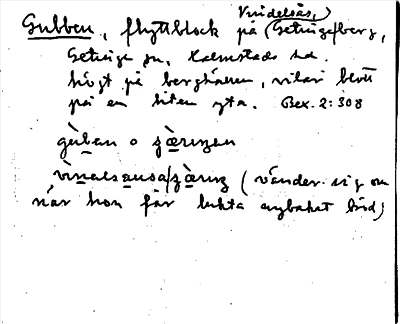 Vindelsås,
Gubben, flyttblock på (Getingeberg,
Getinge sn, Halmstads hd.
högt på berghällen, vilar blott
på en liten yta. Bex. 2:308
gùban o
(vänder sig om
när hon får lukta nybakat bröd)